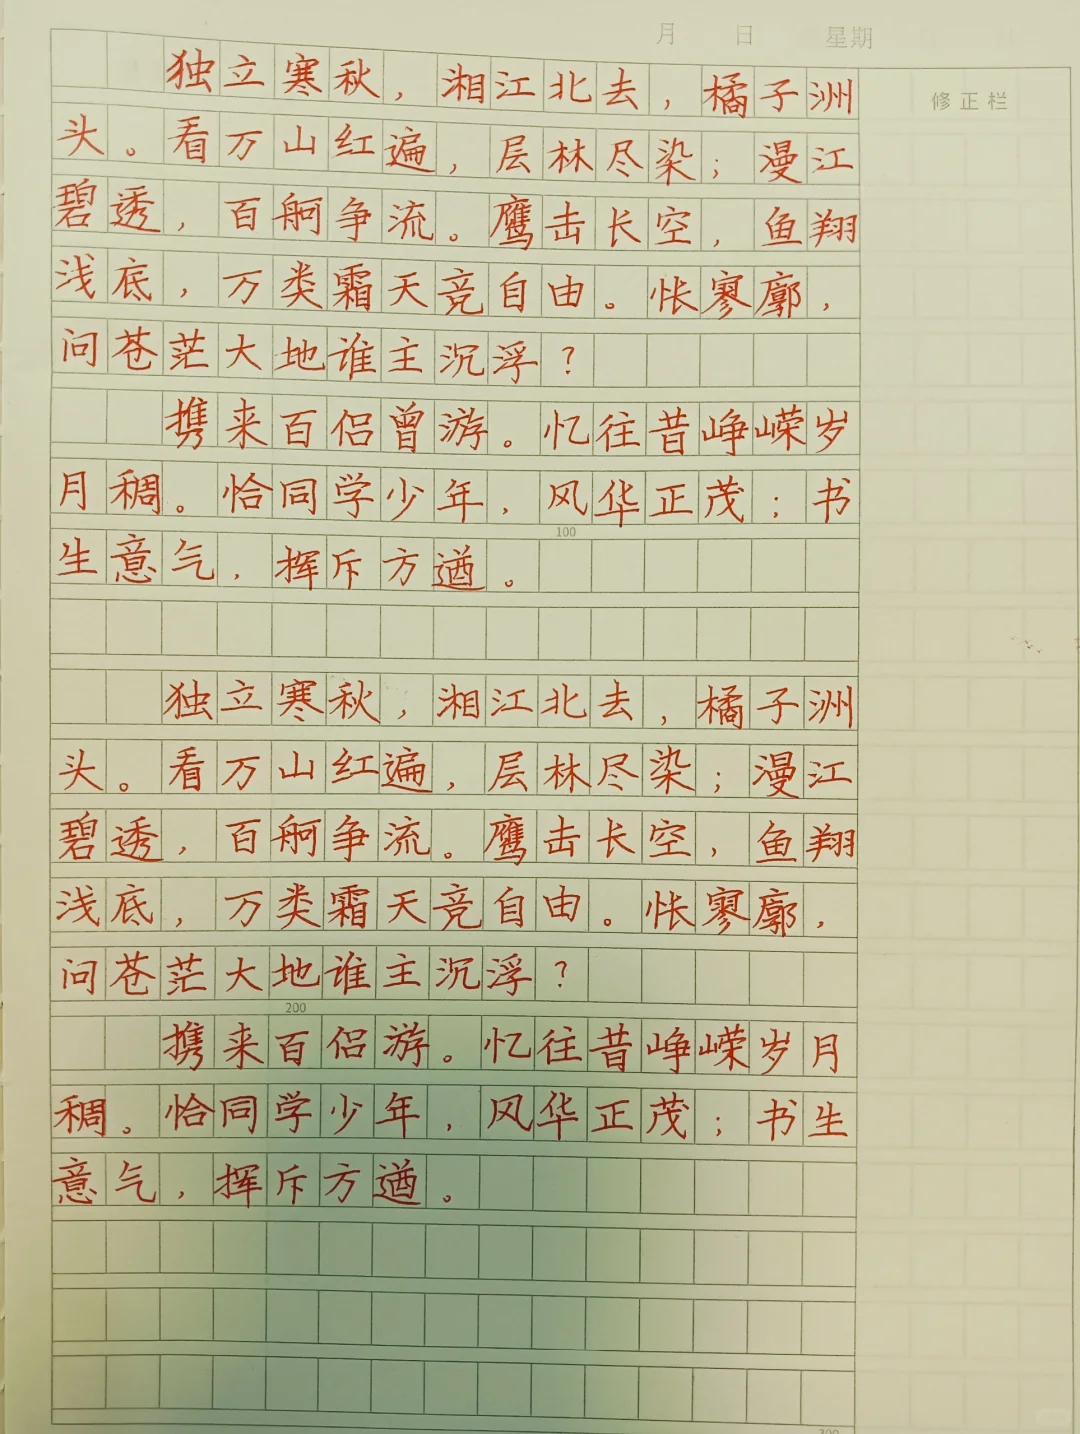 月 日 星期
修正栏
独立寒秋，湘江北去，橘子洲
头。看万山红遍，层林尽染；漫江
碧透，百舸争流。鹰击长空，鱼翔
浅底，万类霜天竞自由。怅寥廓，
问苍茫大地谁主沉浮？
携来百侣曾游。忆往昔峥嵘岁
月稠。恰同学少年，风华正茂；书
100
生意气，挥斥方遒。
独立寒秋，湘江北去，橘子洲
头。看万山红遍，层林尽染；漫江
碧透，百舸争流。鹰击长空，鱼翔
浅底，万类霜天竞自由。怅寥廓，
问苍茫大地谁主沉浮？
200
携来百侣游。忆往昔峥嵘岁月
稠。恰同学少年，风华正茂；书生
意气，挥斥方遒。
300